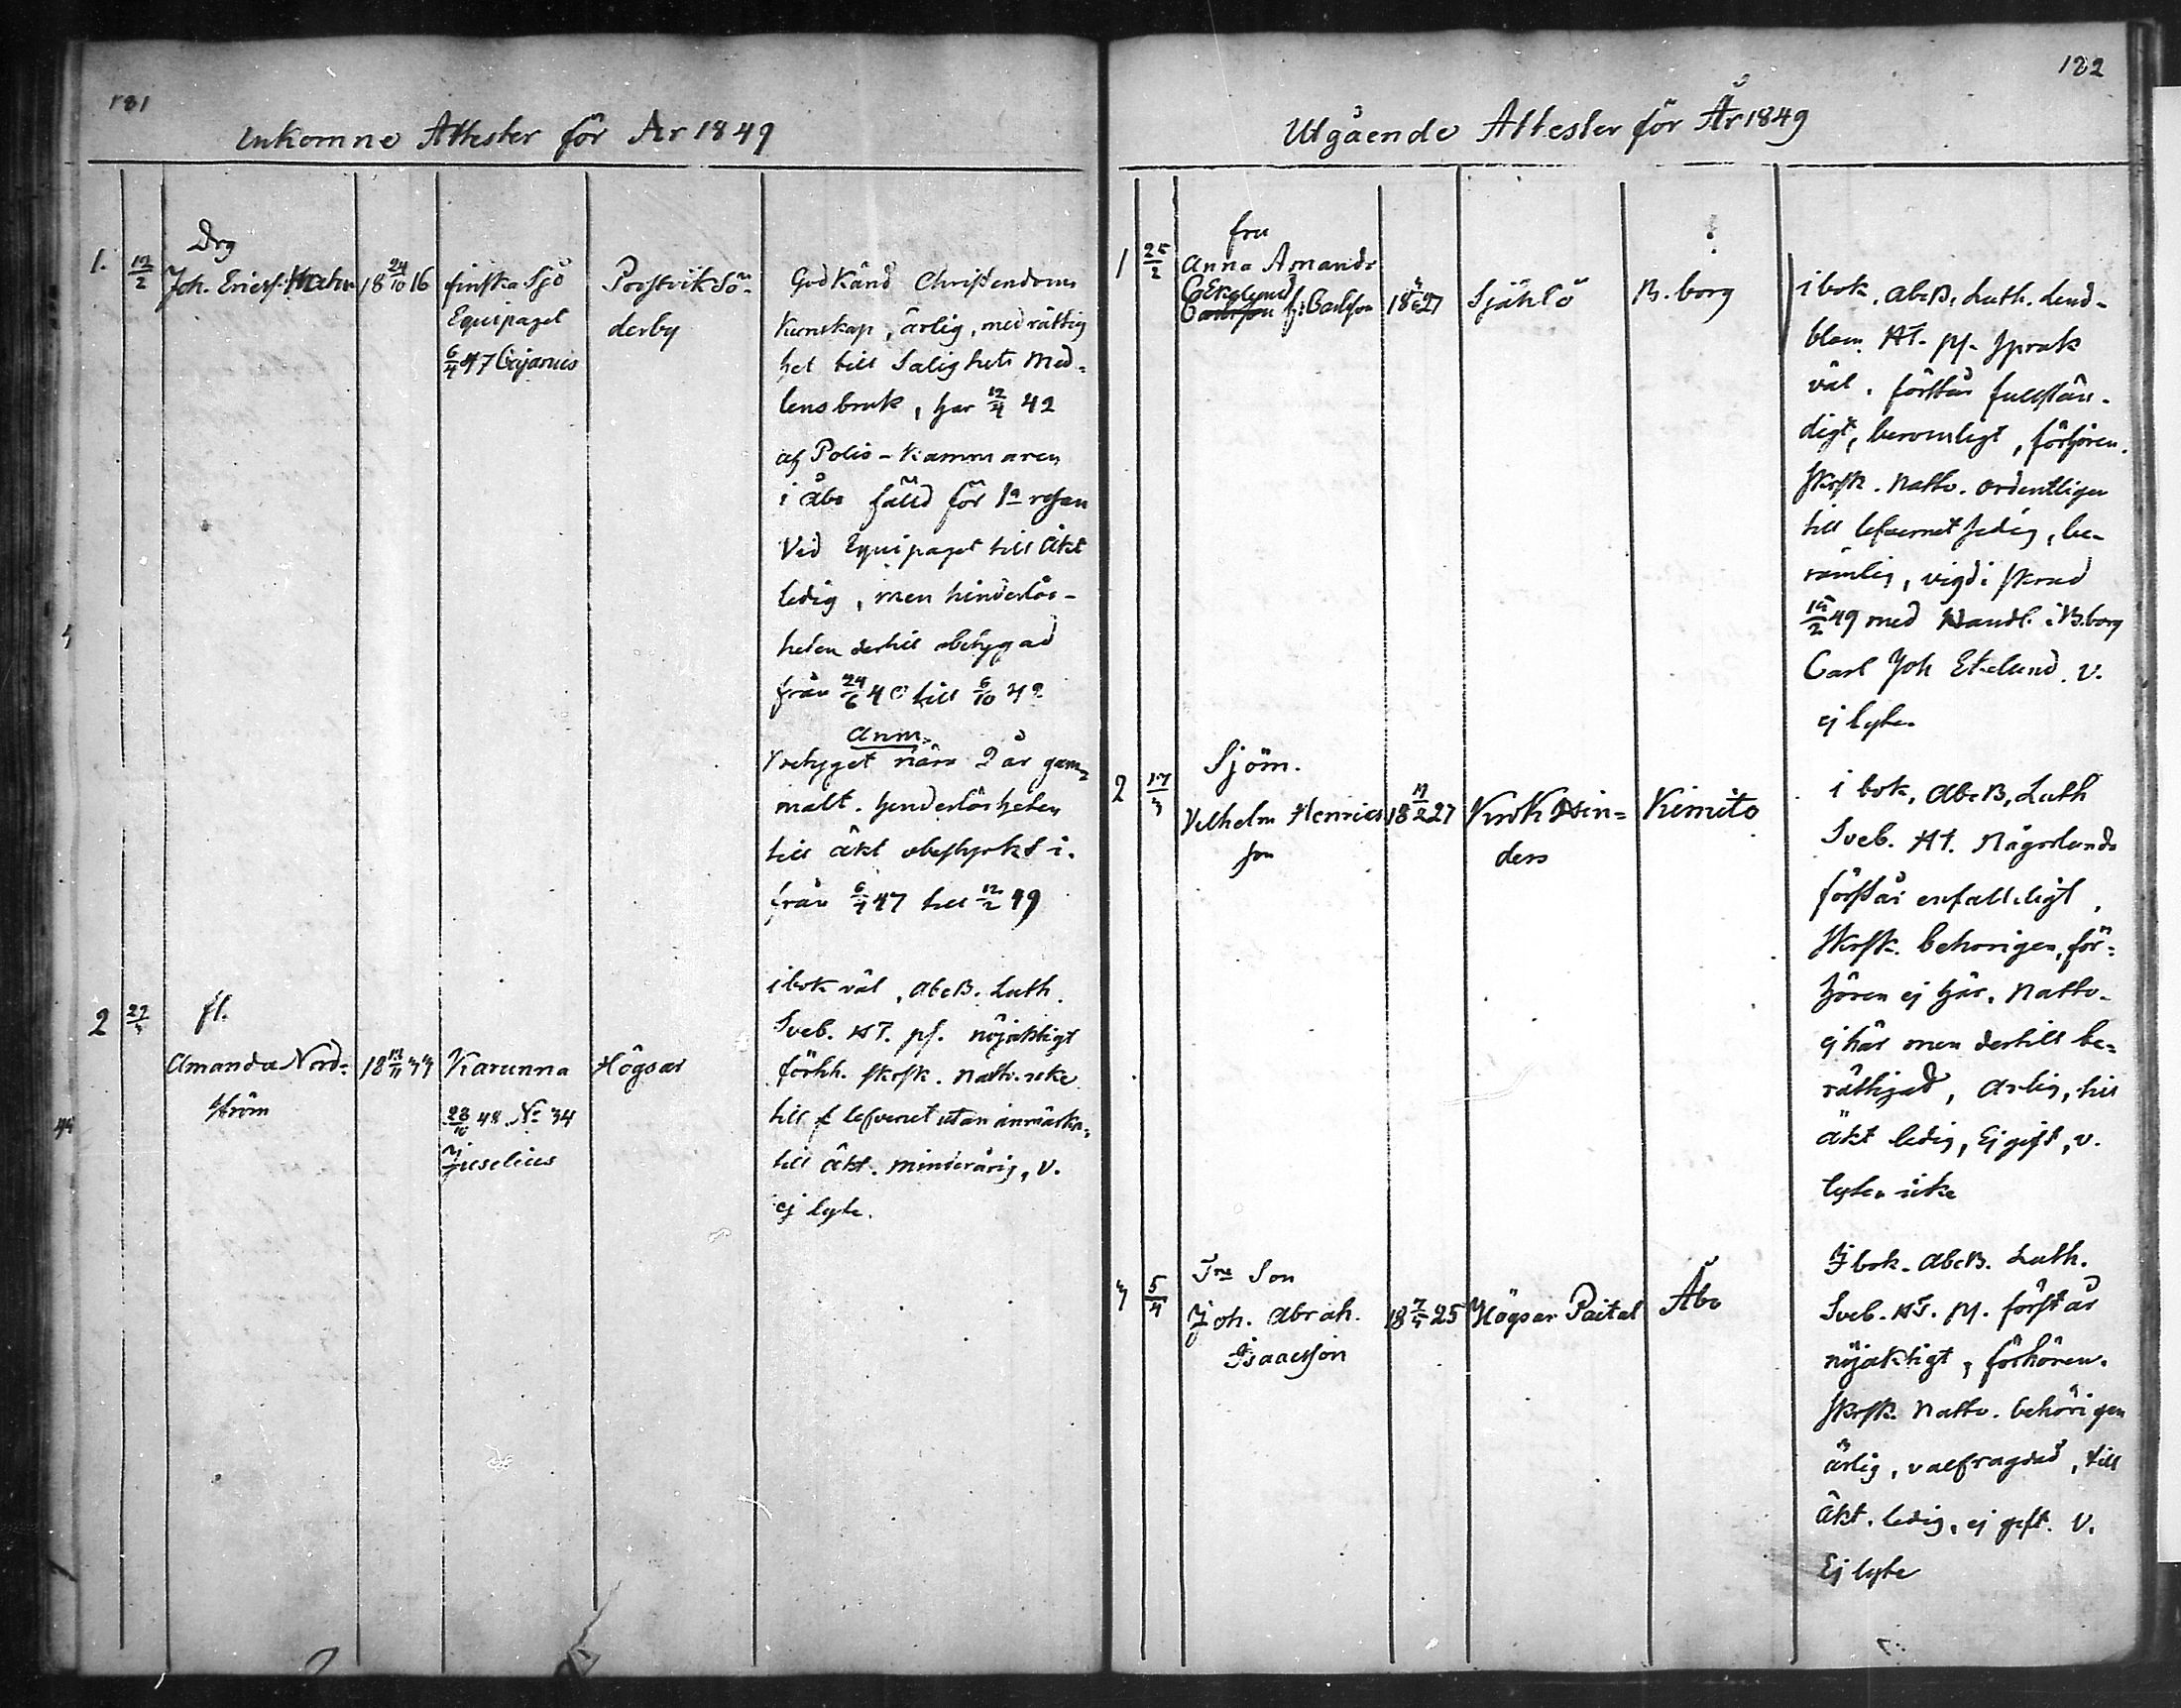 181
Inkomne Attester för År 1849
1.
12/2
Drg
Joh. Ericss.
18 24/10 16
finska Sjö
Equipaget
6/4 47 Cajanus
Prostvik Sö-
derby
Godkänd Christendoms
kunskap, ärlig, med rättig
het till Salighets Med-
lens bruk, har 12/4 42
af Polis-Kammaren
i Åbo fälld för 1a resan
Vid Equipaget till äkt
ledig, men hinderlös-
heten dertill obetygad
från 24/6 40 till 6/10 42
Anm.
Betyget nära 2 år gam-
malt. hinderlösheten
till äkt obestyrkt i.
från 6/4 47 till 12/2 49
2
27/3
fl.
Amanda Nord-
ström
18 12/11 33
Karunna
28/10 48 No 34
Juselius
Högsar
i bok väl, AbcB. Luth.
Sveb. HT. ps. nöjaktigt
förhh. skrsk. nattv. icke
till lefvernet utan anmärkn.
till äkt. minderårig, V.
ej lyte.
182
Utgående Attester för År 1849
1
25/2
fru
Anna Amanda
C Ekelund
Carlsson f: Carlsson
18 27
Själilö
B. borg
i bok, AbcB, Luth. Lind-
blom HT. ps. språk
väl. förstår fullstän-
digt, berömligt, förhören.
Skrsk. Nattv. ordentligen
till lefvernet sedig, be-
römlig, vigd i
2 49 med Handl. i B.borg
Carl Joh Ekelund. V.
ej lyte.
2
17/3
Sjöm.
Vilhelm Henrics
son
18 17/2 27
Krok
ders
Kimito
i bok, AbcB, Luth
Sveb. HT. Någorlunda
förstår enfaldeligt,
Skrsk. behörigen, för-
hören ej här. Nattv.
ej här men dertill be-
rättigad, ärlig, till
äkt ledig, Ej gift, v.
lyten icke
3
5/4
Trs Son
Joh. Abrah.
Isaacsson
18 7/3 25
Högsar Paital
Åbo
I bok. AbcB. Luth.
Sveb. HT. ps. förstår
nöjaktigt, förhören.
Skrsk. Nattv. behörigen
ärlig, välfrägdad, till
äkt. ledig, ej gift. V.
Ej lyte